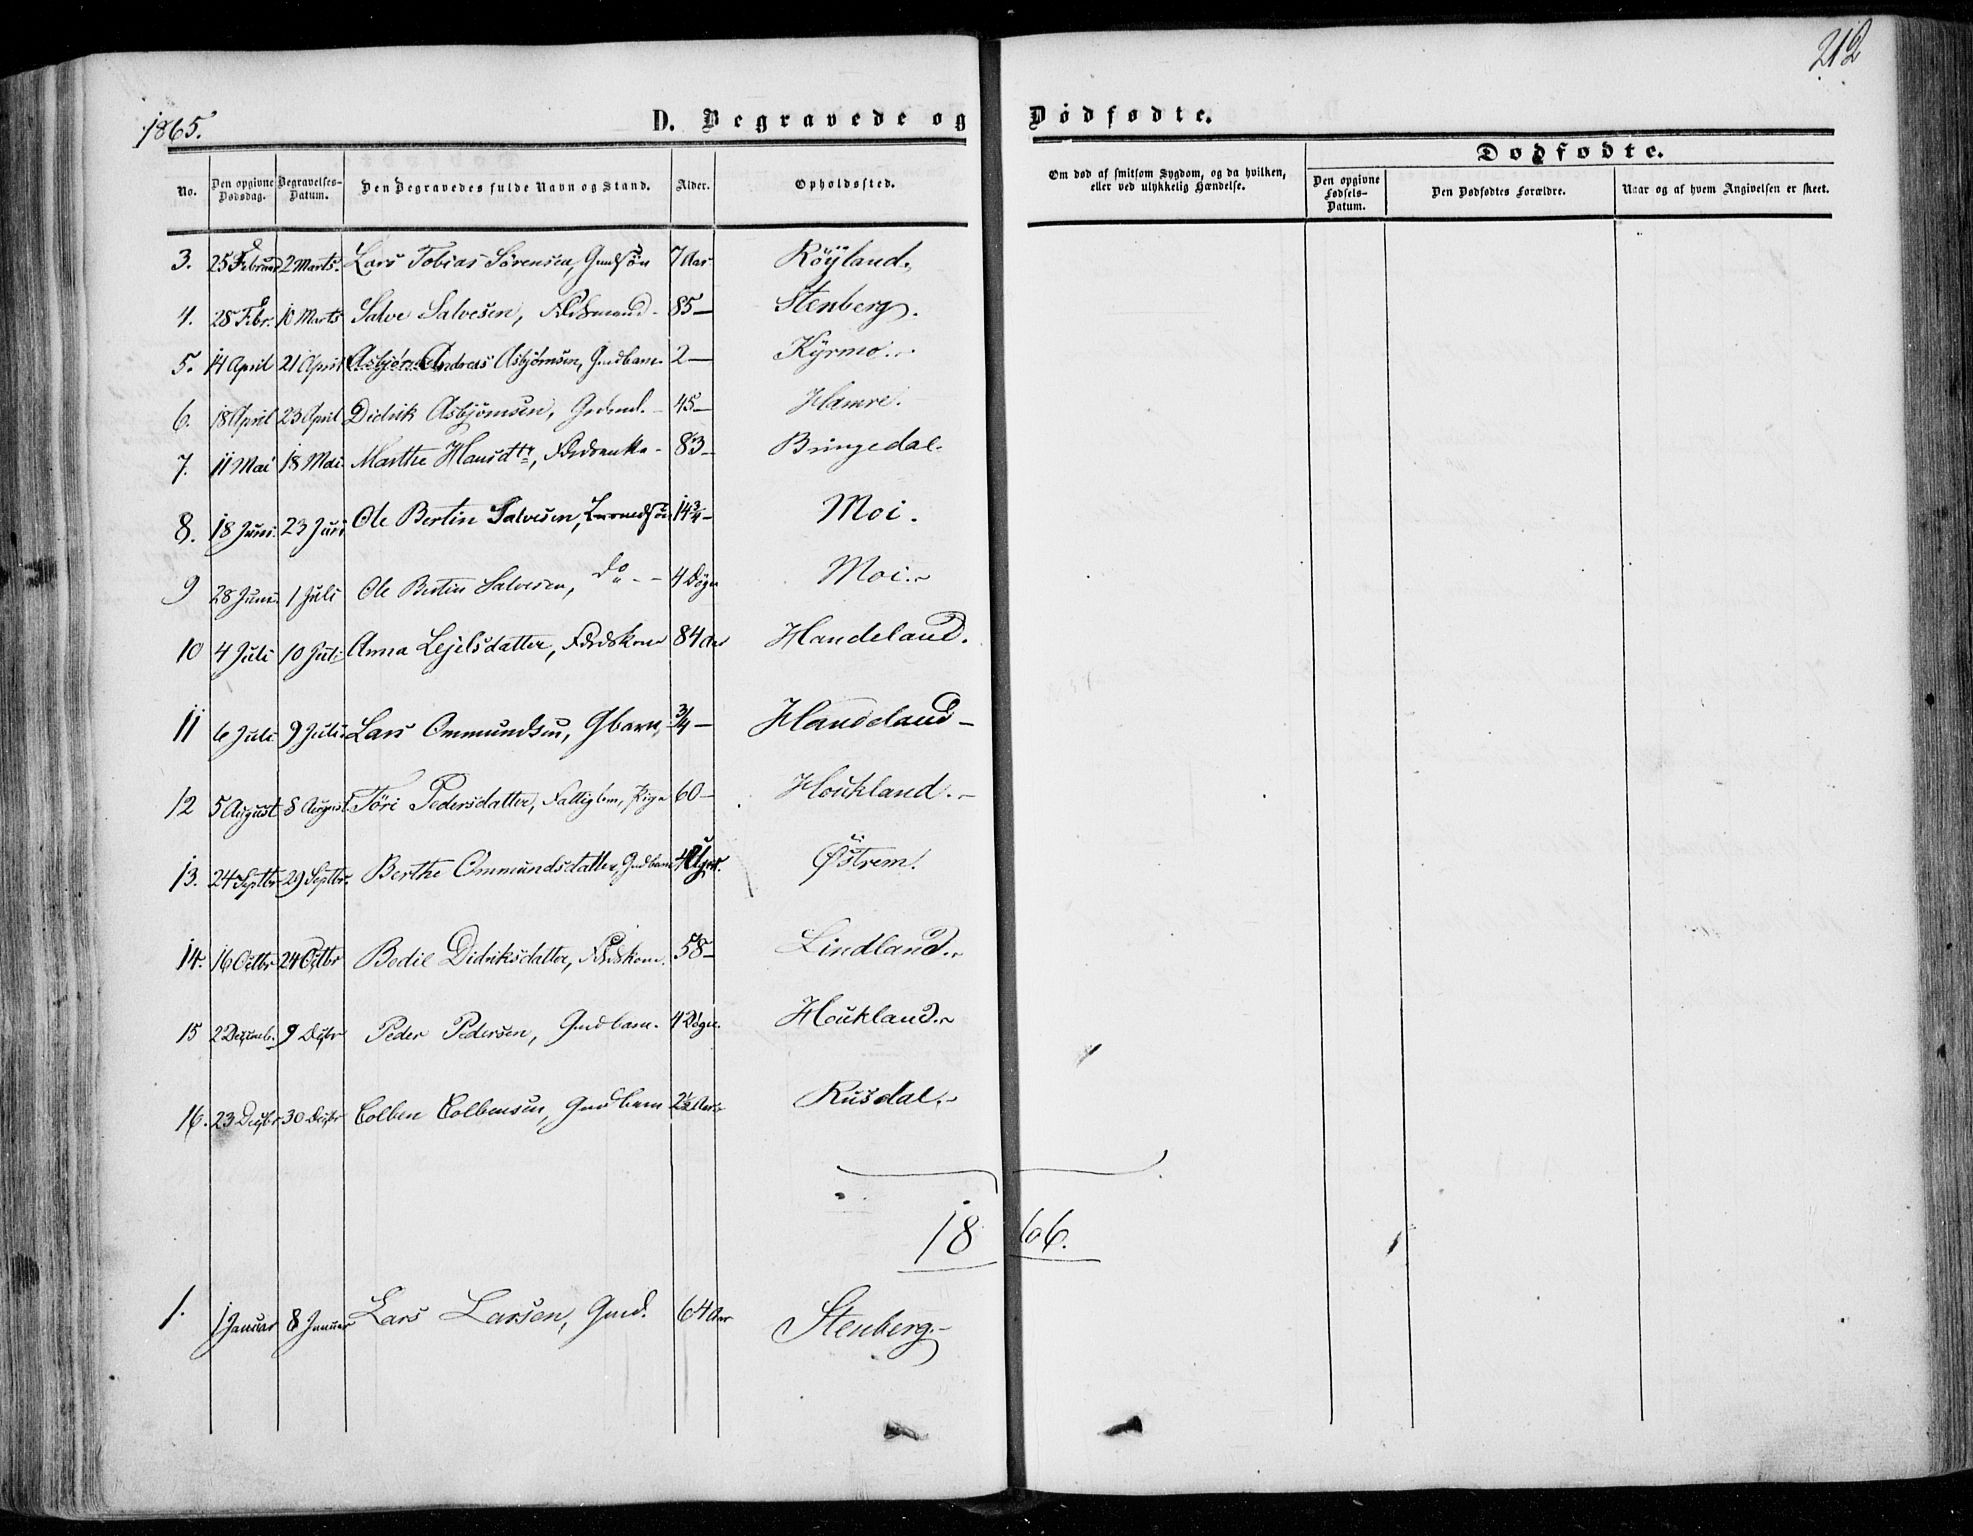 212
1865.
D. Begravede og Dødfødte.
No. Den opgivne Dødsdag. Begravelses-Datum. Den Begravedes fulde Navn og Stand. Alder. Opholdssted. Om død af smitsom Sygdom, og da hvilken, eller ved ulykkelig Hændelse. Dødfødte. Den opgivne Fødsels-Datum. Den Dødfødtes Forældre. Naar og af hvem Angivelsen er skeet.
3. 25 Februar 2 Marts. Lars Tobias Sørensen, Gmdsøn 7 Aar Röyland.
4. 28 Febr. 10 Marts Salve Salvesen, 85 — Stenberg.
5. 14 April 21 April Asbjørn Andreas Asbjørnsen, Gmdbarn. 2 — Kyrmo.
6. 18 April 23 April Didrik Asbjørnsen, 45 — Hamre.
7. 11 Mai 18 Mai Marthe Hansdtr, 83 — Bringedal.
8. 18 Juni 23 Juni Ole Bertin Salvesen, 14 3/4 — Moi.
9 28 Juni 1 Juli Ole Bertin Salvesen, do - - 4 Døgn Moi.
10 4 Juli 10 Juli Anna Eejelsdatter, 84 Aar Handeland.
11 6 Juli 9 Juli Lars Ommundsen, Gbarn, 3/4 — Handeland —
12 5 August 8 August Töri Pedersdatter, Fattiglem, Pige 60 — Houkland.
13. 24 Septbr. 29 Septbr. Berthe Ommundsdatter, Gmdbarn Østrem.
14. 16 Octbr 24 Octbr Bodil Didriksdatter, 58 — Lindland.
15 2 Decemb. 9 Decbr Peder Pedersen, Gmdbarn. 4 Døgn. Houkland.
16. 23 Decbr. 30 Decbr Colben Colbensen, Gmdbarn 2 1/2 Aar Rusdal.
1866.
1. 1 Januar 8 Januar Lars Larsen, Gmd. 64 Aar Stenberg.